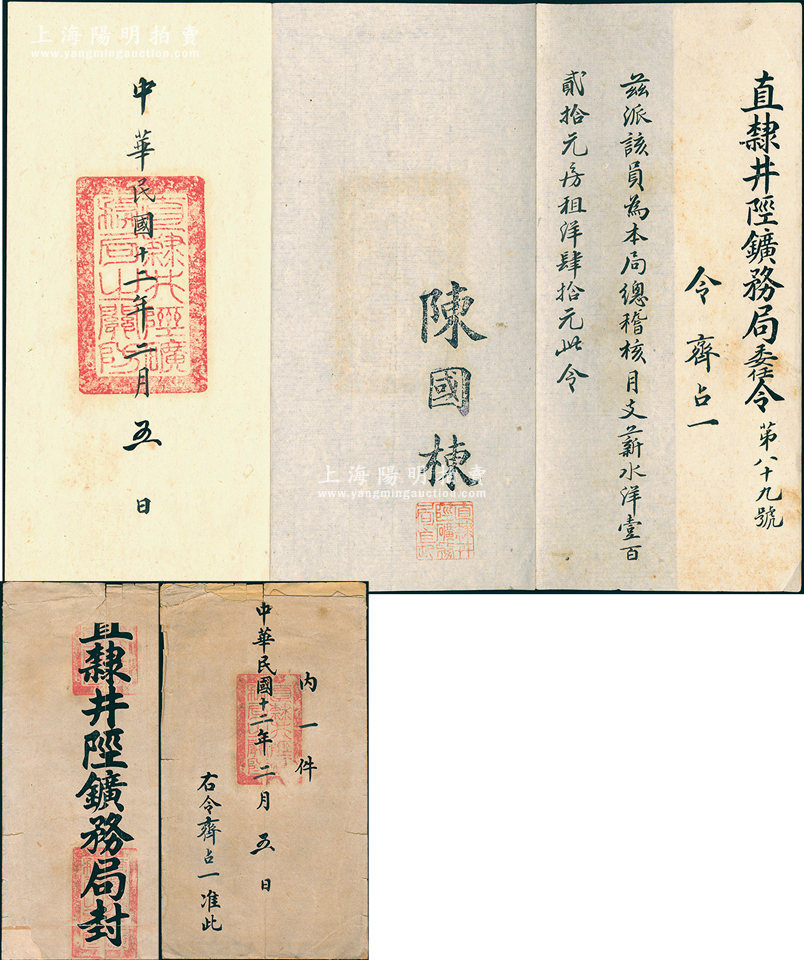 上海陽明拍賣
www.yangmingauction.com
直隸井陘鑛務局委任令第八十九號
令齊占一
茲派該員為本局總稽核月支薪水洋壹百
貳拾元房租洋肆拾元此令
陳國棟
直隸井陘鑛務局長
中華民國十二年二月五日
直隸井陘鑛務局之關防
上海陽明拍賣
www.yangmingauction.com
內一件
中華民國十二年二月五日
右令齊占一准此
直隸井陘鑛務局封